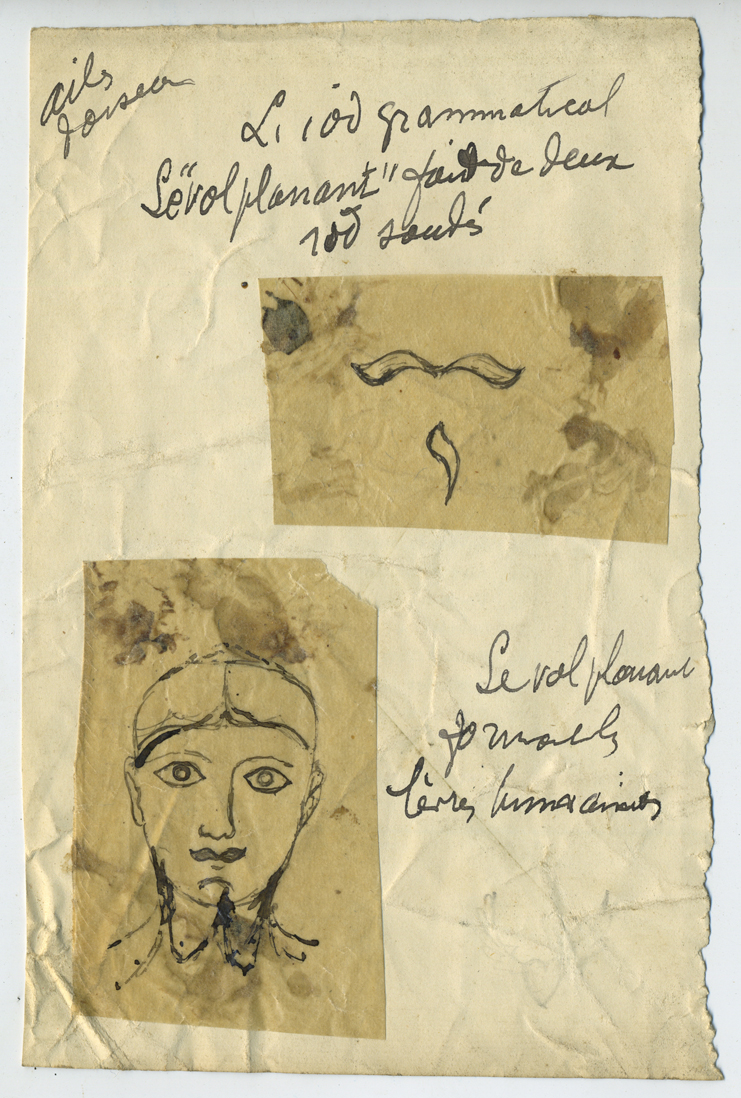 ails
d'oiseau
Le iod grammatical
Le "vol planant" fait de deux
iod soudés
Le vol planant
forme les
lèvres humaines